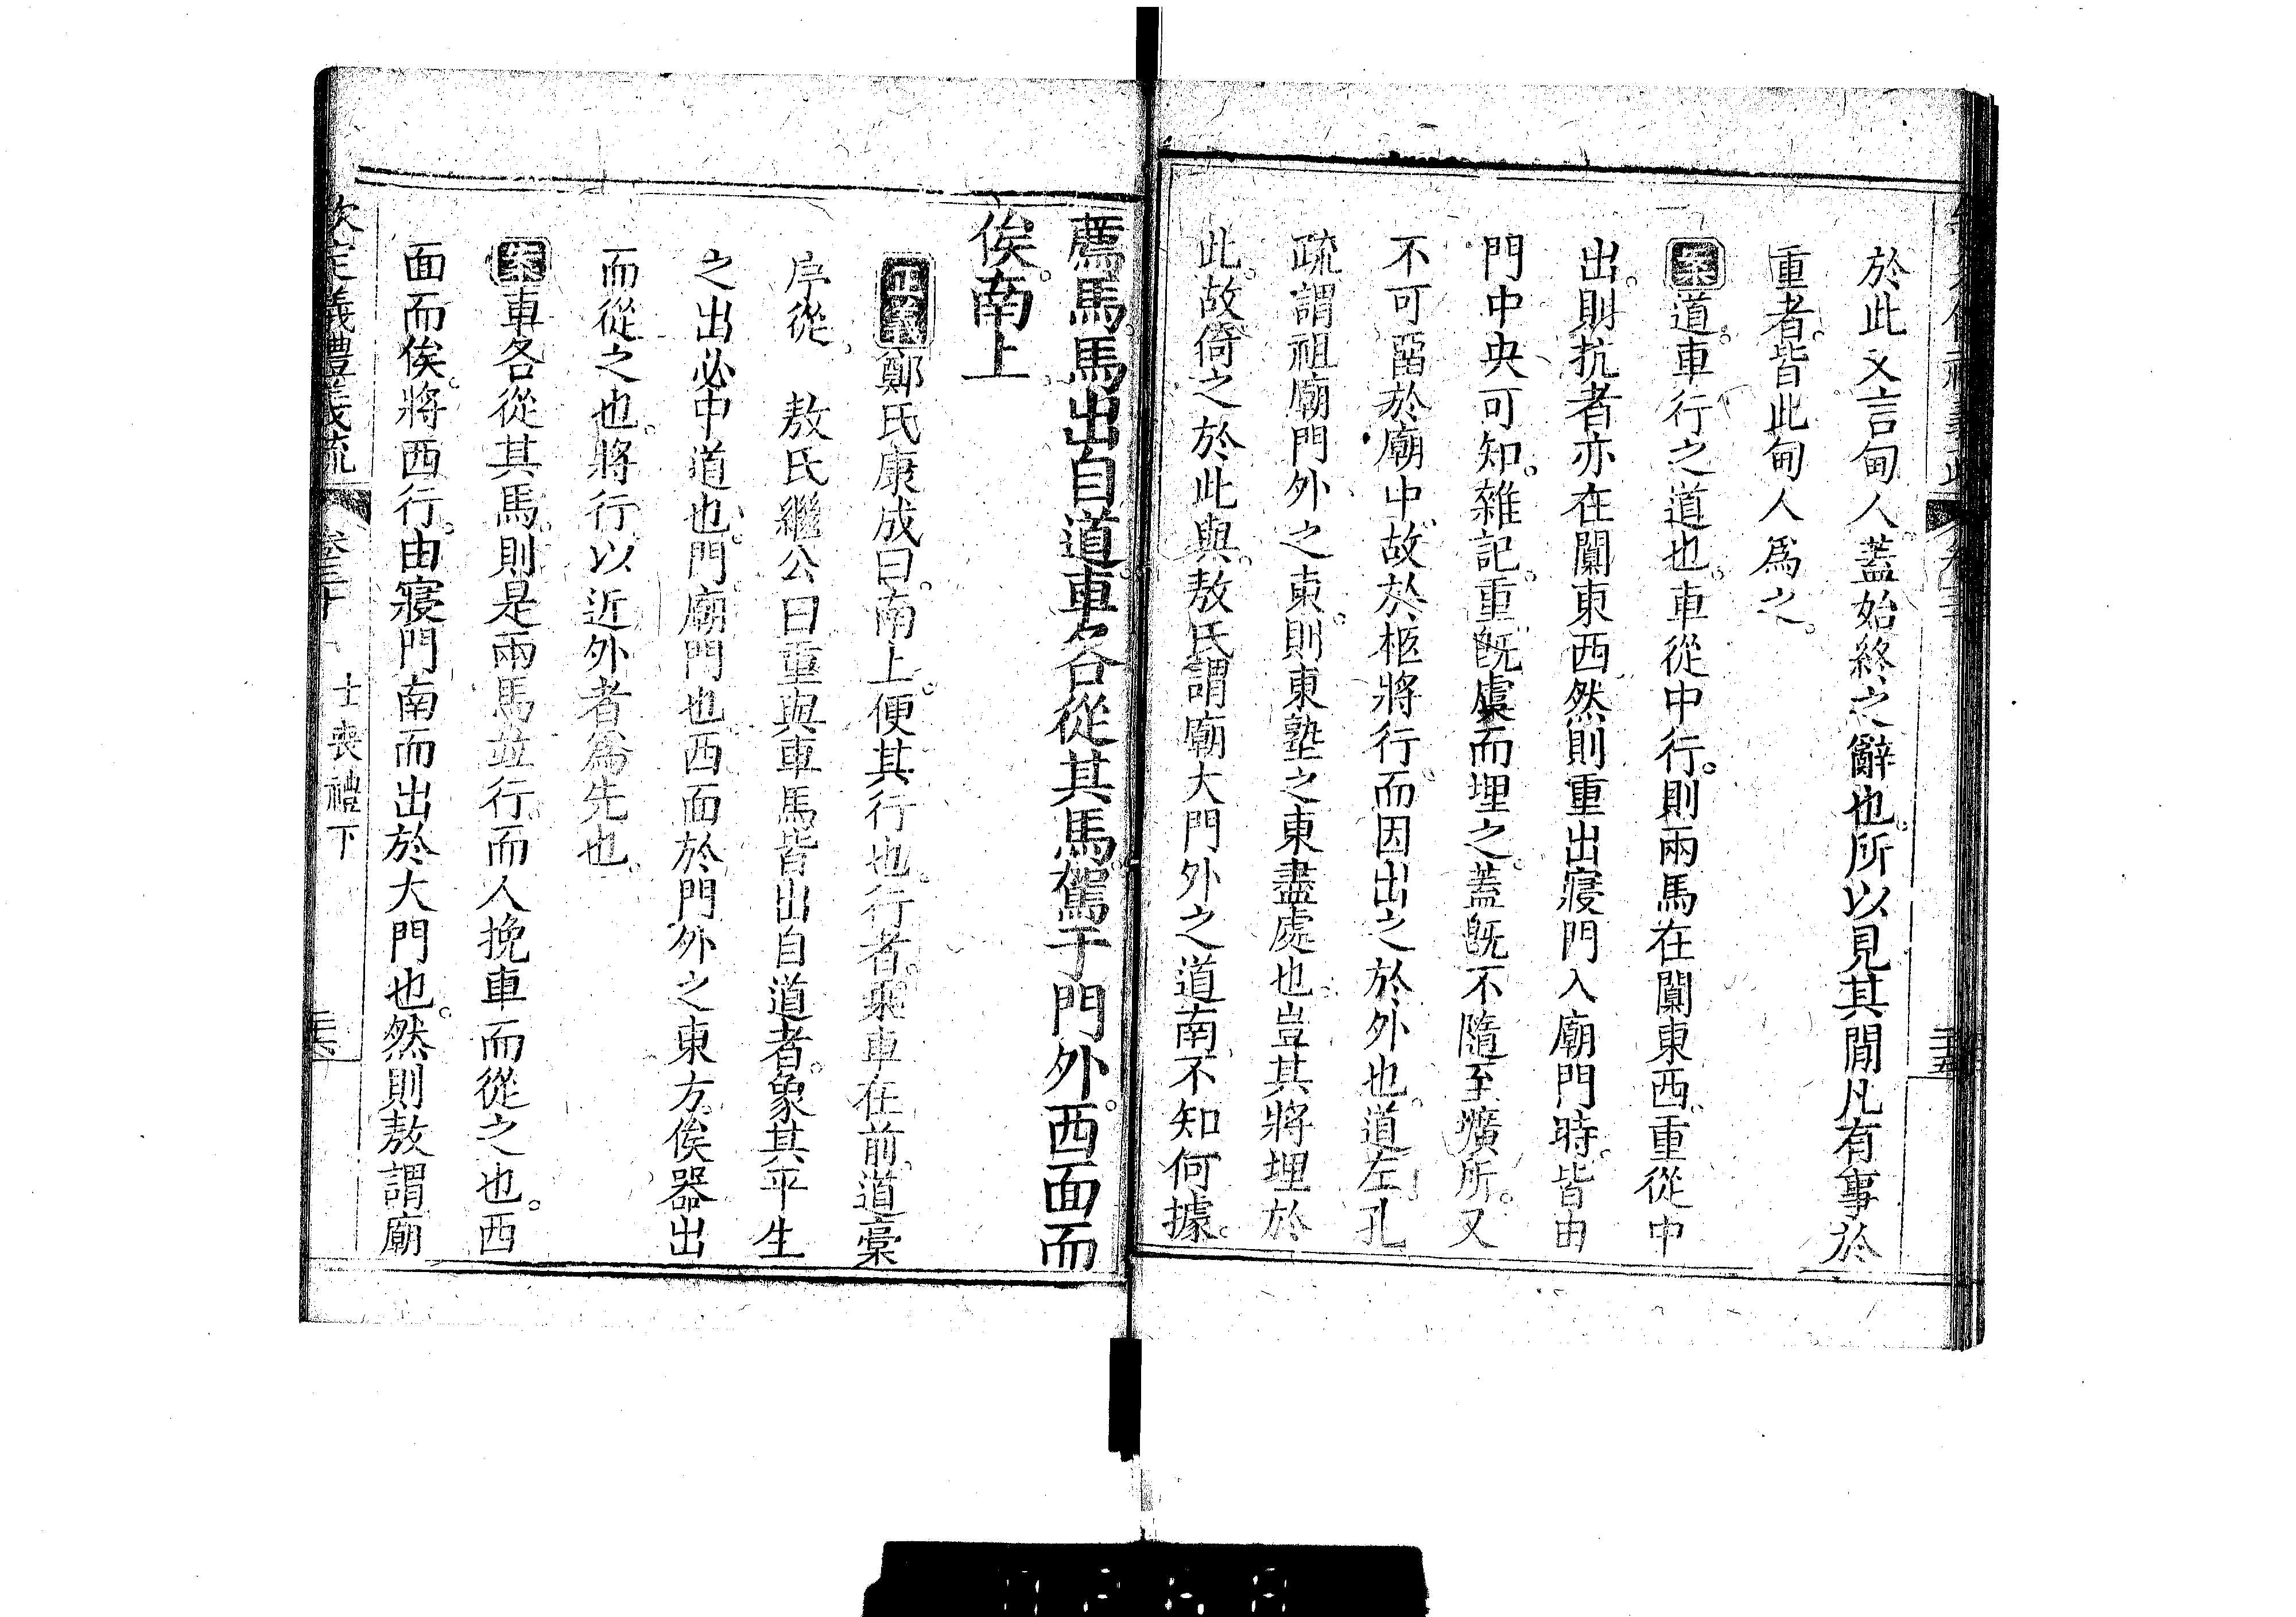 於此又言甸人蓋始終之辭也所以見其閒凡有事於
重者皆此甸人爲之
案道車行之道也車從中行則兩馬在闑東西重從中
出則抗者亦在闑東西然則重出寢門入廟門時皆由
門中央可知雜記重旣虞而埋之蓋旣不隨至壙所又
不可畱於廟中故於柩將行而因出之於外也道左孔
疏謂祖廟門外之東則東塾之東盡處也豈其將埋於
此故倚之於此與敖氏謂廟大門外之道南不知何據
薦馬馬出自道車各從其馬駕于門外西面而
俟南上
正義鄭氏康成曰南上便其行也行者乘車在前道稾
序從 敖氏繼公曰重與車馬皆出自道者象其平生
之出必中道也門廟門也西面於門外之東方俟器出
而從之也將行以近外者爲先也
案車各從其馬則是兩馬竝行而人挽車而從之也西
面而俟將西行由寢門南而出於大門也然則敖謂廟
欽定義禮義疏 士喪禮下